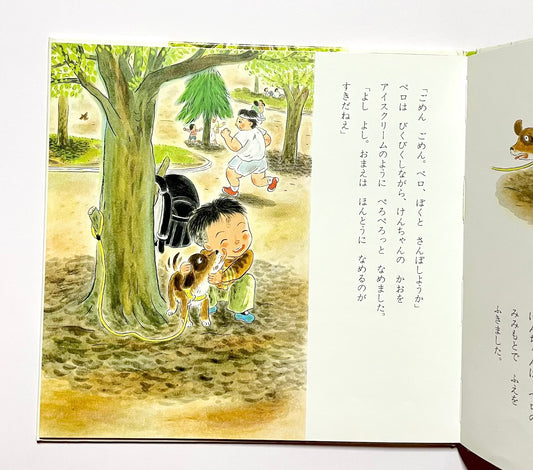 「ごめん ごめん。ペロ、ぼくと さんぽしようか」
ペロは びくびくしながら、けんちゃんの かおを
アイスクリームのように ぺろぺろっと なめました。
「よし よし。おまえは ほんとうに なめるのが
すきだねえ」
みみもとで ふえを
ふきました。